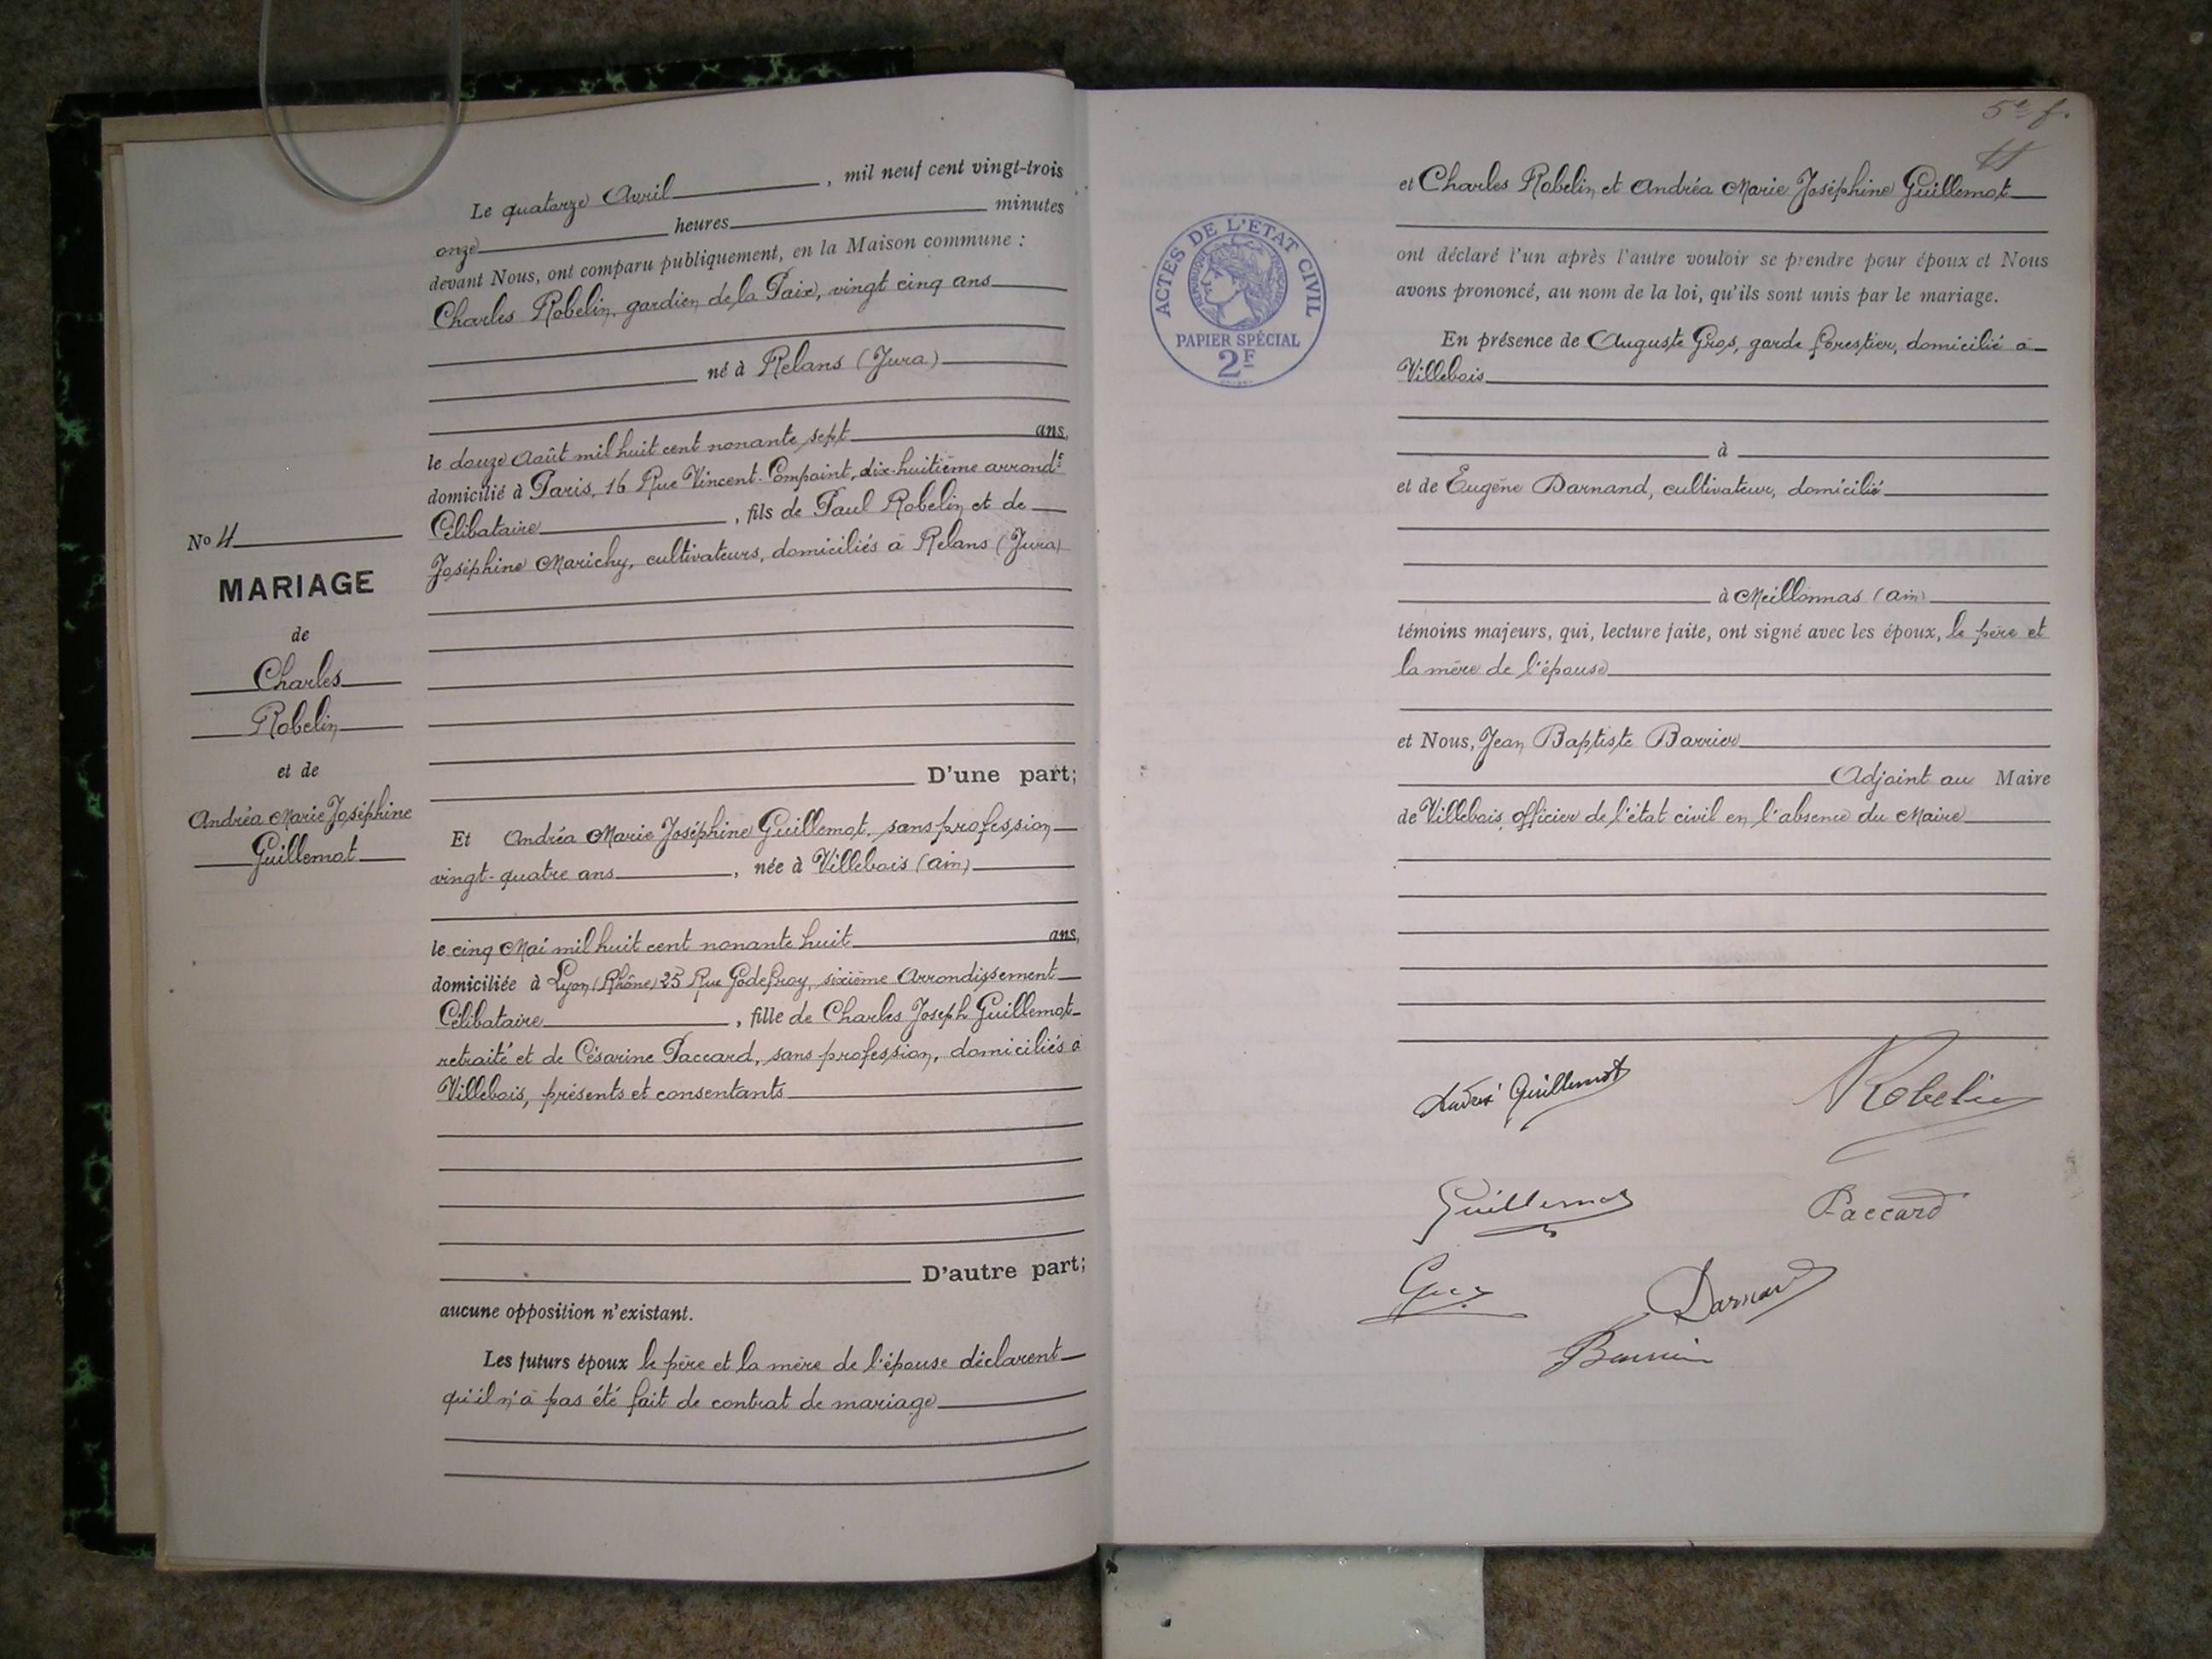 Le quatorze Avril, mil neuf cent vingt-trois
onze heures minutes
devant Nous, ont comparu publiquement, en la Maison commune :
Charles Robelin, gardien de la Paix, vingt cinq ans
né à Relans (Jura)
le douze Août mil huit cent nonante sept ans,
domicilié à Paris, 16 Rue Vincent-Compoint, dix-huitième arrondt
Célibataire, fils de Paul Robelin et de
Joséphine Marichy, cultivateurs, domiciliés à Relans (Jura)
No 4
MARIAGE
de
Charles
Robelin
et de
Andréa Marie Joséphine
Guillemot
D'une part;
Et Andréa Marie Joséphine Guillemot, sans profession
vingt-quatre ans, née à Villebois (ain)
le cinq Mai mil huit cent nonante huit ans,
domiciliée à Lyon (Rhône) 25 Rue Godefroy, sixième Arrondissement
Célibataire, fille de Charles Joseph Guillemot
retraité et de Césarine Paccard, sans profession, domiciliés à
Villebois, présents et consentants
D'autre part;
aucune opposition n'existant.
Les futurs époux le père et la mère de l'épouse déclarent
qu'il n'a pas été fait de contrat de mariage
5e f.
et Charles Robelin et Andréa Marie Joséphine Guillemot
ont déclaré l'un après l'autre vouloir se prendre pour époux et Nous
avons prononcé, au nom de la loi, qu'ils sont unis par le mariage.
ACTES DE L'ETAT CIVIL
REPUBLIQUE FRANÇAISE
PAPIER SPÉCIAL
2F
En présence de Auguste Gros, garde forestier, domicilié à
Villebois
à
et de Eugène Darnand, cultivateur, domicilié
à Meillonnas (ain)
témoins majeurs, qui, lecture faite, ont signé avec les époux, le père et
la mère de l'épouse
et Nous, Jean Baptiste Barrier
Adjoint au Maire
de Villebois, officier de l'état civil en l'absence du Maire
Guillemot
Robelin
Guillemot
Paccard
Gros
Darnand
Barrier